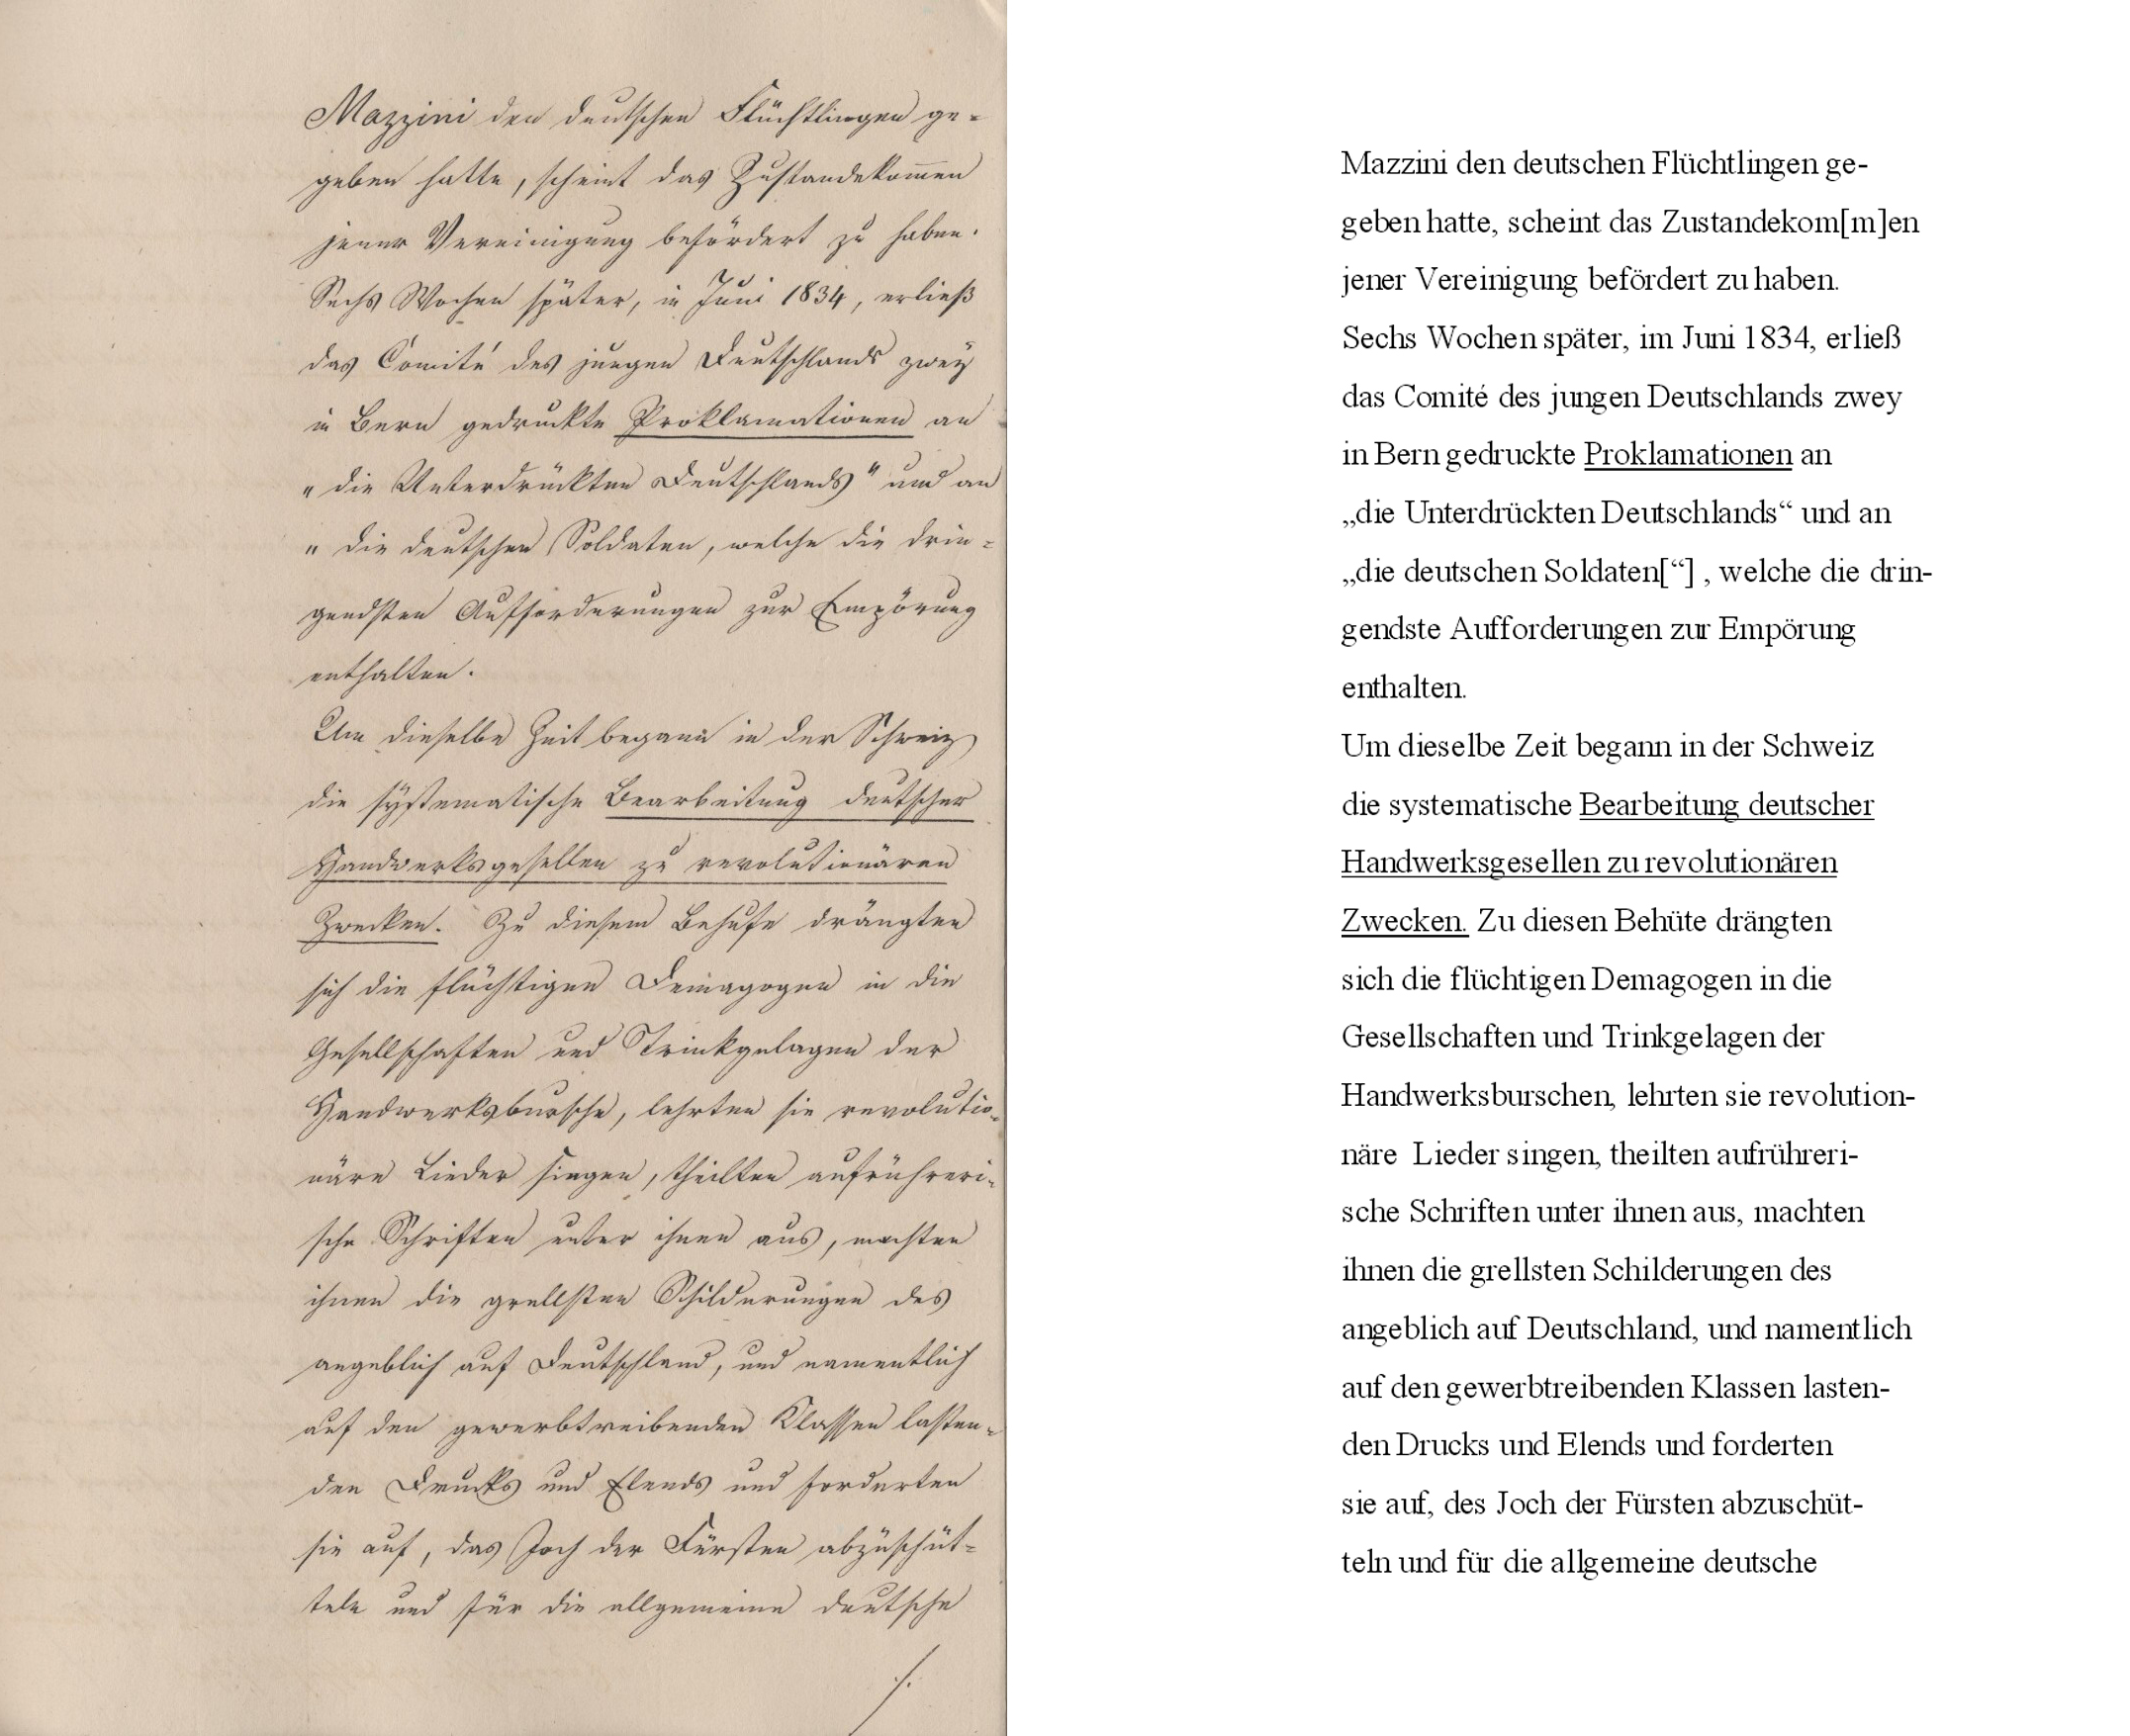 Mazzini den deutschen Flüchtlingen ge-
geben hatte, scheint das Zustandekom̅en
jener Vereinigung befördert zu haben.
Sechs Wochen später, in Juni 1834, erließ
das Comité des jungen Deutschlands zwey
in Bern gedruckte Proklamationen an
„die Unterdrückten Deutschlands“ und an
„die deutschen Soldaten, welche die drin-
gendsten Aufforderungen zur Empörung
enthalten.
Um dieselbe Zeit begann in der Schweiz
die systematische Bearbeitung deutscher
Handwerksgesellen zu revolutionären
Zwecken. Zu diesem Behufe drängten
sich die flüchtigen Demagogen in die
Gesellschaften und Trinkgelagen der
Handwerksbursche, lehrten sie revolutio-
näre Lieder singen, theilten aufrühreri-
sche Schriften unter ihnen aus, machten
ihnen die grellsten Schilderungen des
angeblich auf Deutschland, und namentlich
auf den gewerbtreibenden Klassen lasten-
den Drucks und Elends und forderten
sie auf, das Joch der Fürsten abzuschüt-
teln und für die allgemeine deutsche
Mazzini den deutschen Flüchtlingen ge-
geben hatte, scheint das Zustandekom[m]en
jener Vereinigung befördert zu haben.
Sechs Wochen später, im Juni 1834, erließ
das Comité des jungen Deutschlands zwey
in Bern gedruckte Proklamationen an
„die Unterdrückten Deutschlands“ und an
„die deutschen Soldaten[“] , welche die drin-
gendste Aufforderungen zur Empörung
enthalten.
Um dieselbe Zeit begann in der Schweiz
die systematische Bearbeitung deutscher
Handwerksgesellen zu revolutionären
Zwecken. Zu diesen Behüte drängten
sich die flüchtigen Demagogen in die
Gesellschaften und Trinkgelagen der
Handwerksburschen, lehrten sie revolution-
näre Lieder singen, theilten aufrühreri-
sche Schriften unter ihnen aus, machten
ihnen die grellsten Schilderungen des
angeblich auf Deutschland, und namentlich
auf den gewerbtreibenden Klassen lasten-
den Drucks und Elends und forderten
sie auf, des Joch der Fürsten abzuschüt-
teln und für die allgemeine deutsche